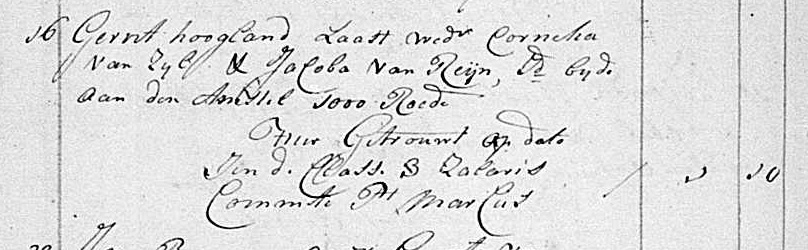 16 Gerrit hoogland Laast wedr Cornelia
van Zyl & Jacoba van Reijn, beyde
aan den Amstel 1000 Roede
Hier Getrouwt op dato
In d. Classe 3 Zalaris
Commste Pr Marcus